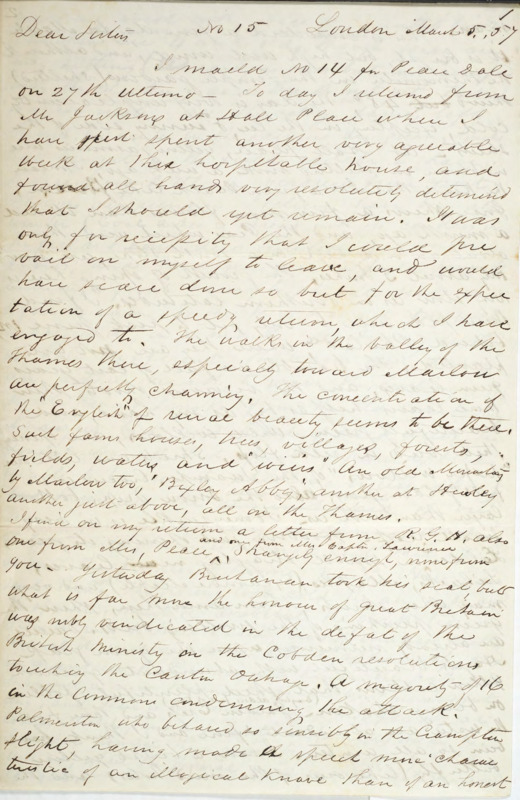 1
Dear Sisters No 15 London March 5, 57
I maild No 14 for Peace Dale
on 27th ultimo — To day I returnd from
Mr Jacksons at Hall Place where I
have spent another very agreeable
week at this hospitable house, and
found all hands very resolutely determind
that I should yet remain. It was
only for necessity that I could pre
vail on myself to leave, and would
have scarce done so but for the expec
tation of a speedy return, which I have
engaged to. The walks in the valley of the
Thames there, especially toward Marlow
are perfectly charming. The concentration of
the "English" of rural beauty seems to be there.
Such farm houses, trees, villages, forests,
fields, waters and "wiers" an old Monastery
by Marlow too, "Bixley Abby", another at Henley
another just above, all on the Thames.
I find on my return a letter from R. G. H. also
one from Mrs, Peace, and one from Mrs Captn. Lawrence Strangely enough, none from
you — Yesterday Buchanan took his seat, but
what is far more the honour of great Britain
was nobly vindicated in the defeat of the
British Ministry on the Cobden resolutions
touching the Canton Outrage. A majority of 16
in the Commons condemning the attack.
Palmerston who behaved so sensibly in the Crampton
flight, having made a speech more charac
teristic of an illogical Knave than of an honest